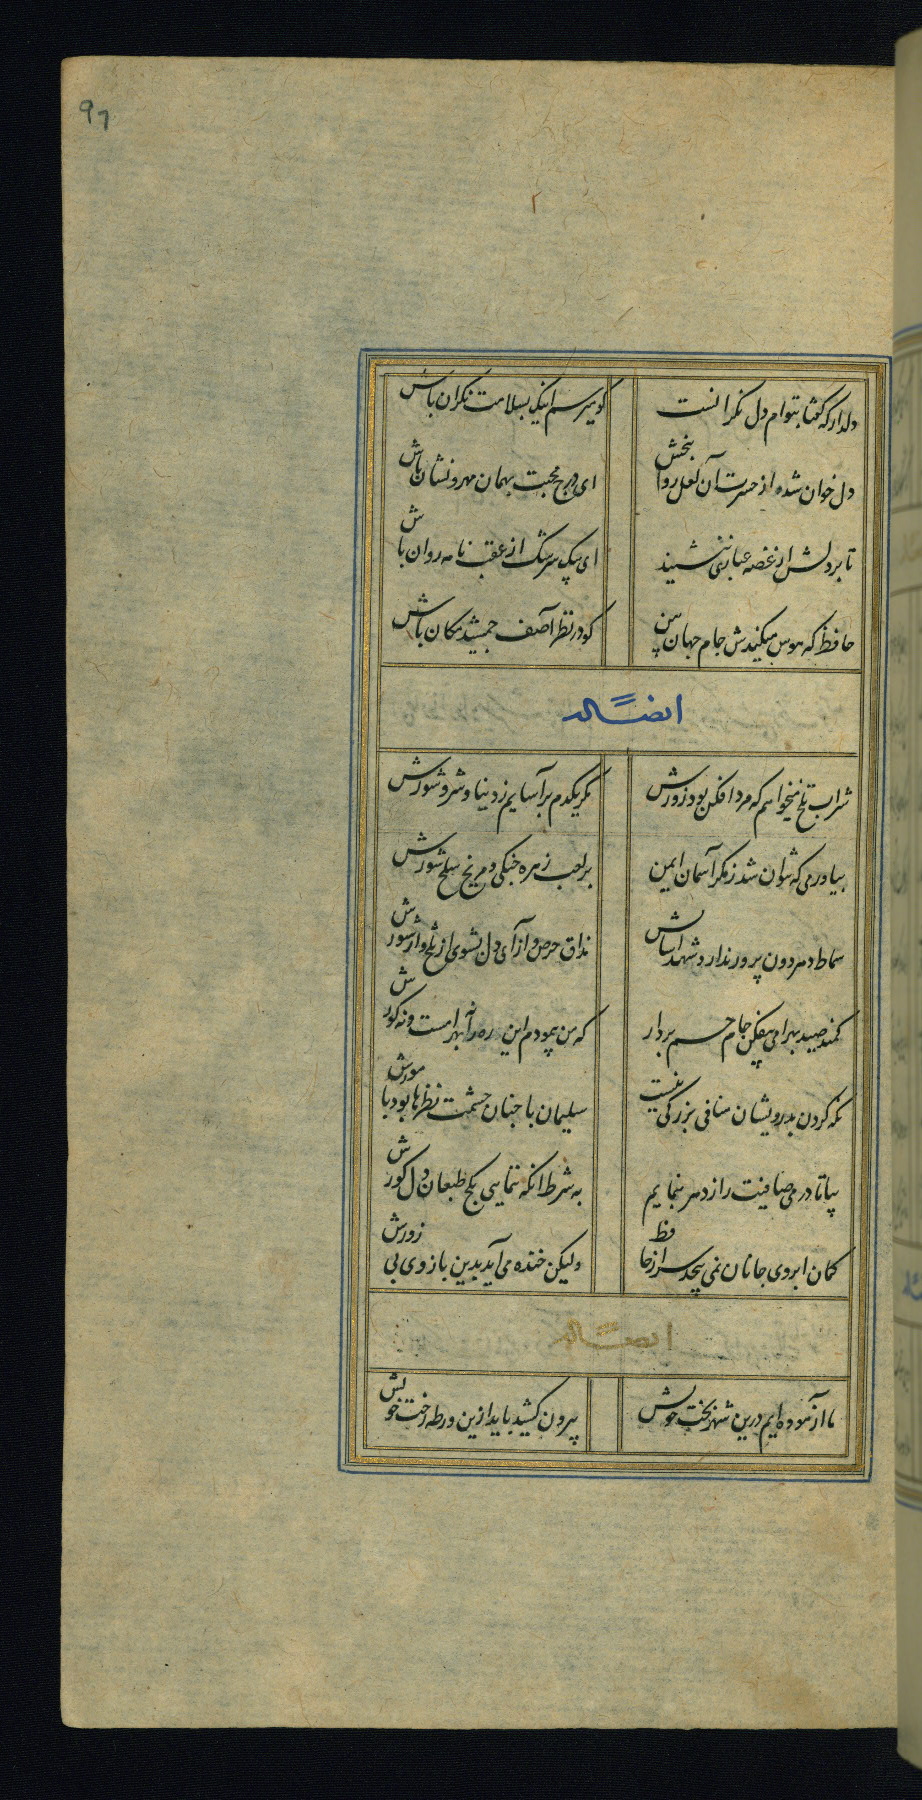 97
دلدار که گفتا بتوام دل نگرانست
گو میرسم اینک بسلامت نگران باش
دل خوان شده از حسرت آن لعل روا بخش
ای درج محبت بهمان مهر و نشان باش
تا بر دلش از غصه غباری ننشیند
ای پیک سرشک از عقب نامه روان باش
حافظ که هوس میکندش جام جهان بین
گو در نظر آصف جمشید مکان باش
ایضًا له
شراب تلخ میخواهم که مرد افکن بود زورش
مگر یکدم برآسایم ز دنیا و شر و شورش
بیاور می که نتوان شد ز مکر آسمان ایمن
بلعب زهره چنکی و مریخ سلح شورش
سماط دهر دون پرور ندارد شهد آسایش
مذاق حرص و آز ای دل بشوی از تلخ و از شورش
کمند صید بهرامی بیفکن جام جم بردار
که من پیمودم این ره نه بهرامست و نه گورش
نکه کردن بدرویشان منافی بزرکی نیست
سلیمان با چنان حشمت نظرها بود با مورش
بیا تا در می صافیت راز دهر بنمایم
به شرط آنکه ننمایی بکج طبعان دل کورش
کمان ابروی جانان نمی پیچد سر از حافظ
ولیکن خنده می آید بدین بازوی بی زورش
ایضًا له
ما آزموده ایم درین شهر بخت خویش
بیرون کشید باید ازین ورطه رخت خویش